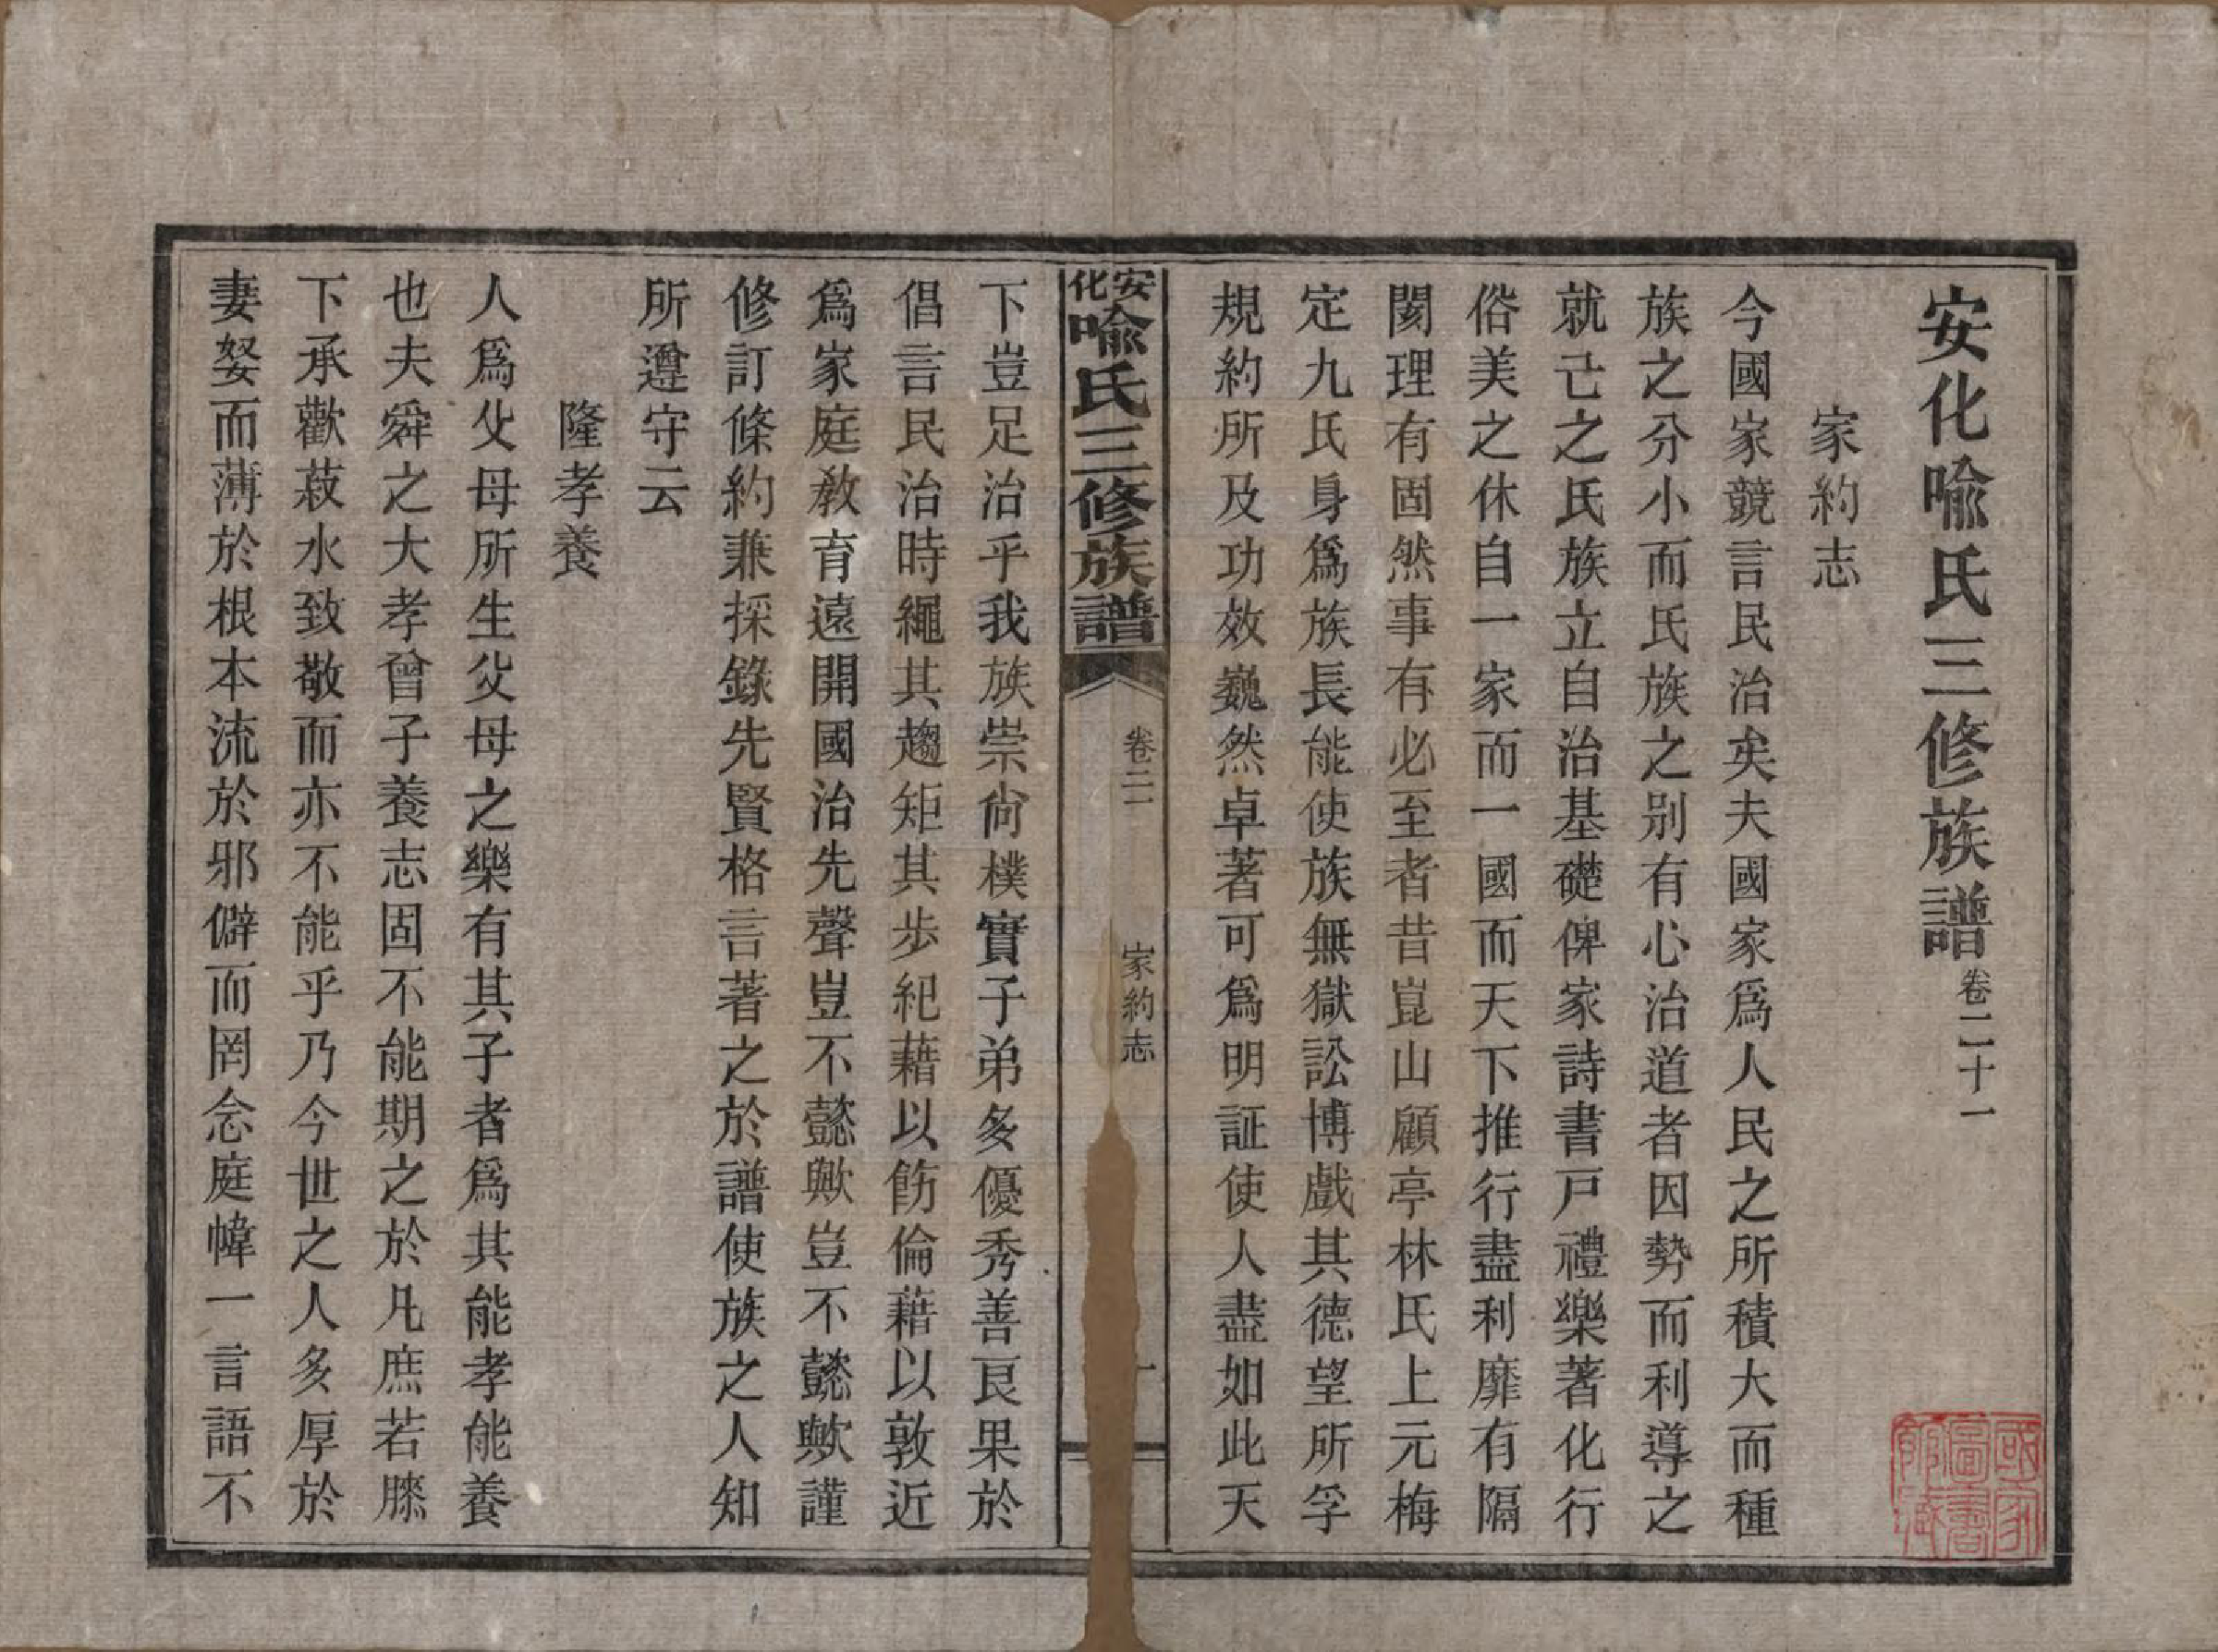 安化喩氏三修族譜卷二十一
家約志
今國家競言民治矣夫國家爲人民之所積大而種
族之分小而氏族之别有心治道者因勢而利導之
就己之氏族立自治基礎俾家詩書戸禮樂著化行
俗美之休自一家而一國而天下推行盡利靡有隔
閡理有固然事有必至者昔崑山顧亭林氏上元梅
定九氏身爲族長能使族無獄訟博戲其德望所孚
規約所及功效巍然卓著可爲明証使人盡如此天
安化喩氏三修族譜
卷二一
家約志
一
下豈足治乎我族崇尙樸實子弟多優秀善良果於
倡言民治時繩其趨矩其步紀藉以飭倫藉以敦近
爲家庭敎育遠開國治先聲豈不懿歟豈不懿歟謹
修訂條約兼採錄先賢格言著之於譜使族之人知
所遵守云
隆孝養
人爲父母所生父母之樂有其子者爲其能孝能養
也夫舜之大孝曾子養志固不能期之於凡庶若膝
下承歡菽水致敬而亦不能乎乃今世之人多厚於
妻孥而薄於根本流於邪僻而罔念庭幃一言語不
國家圖書館藏